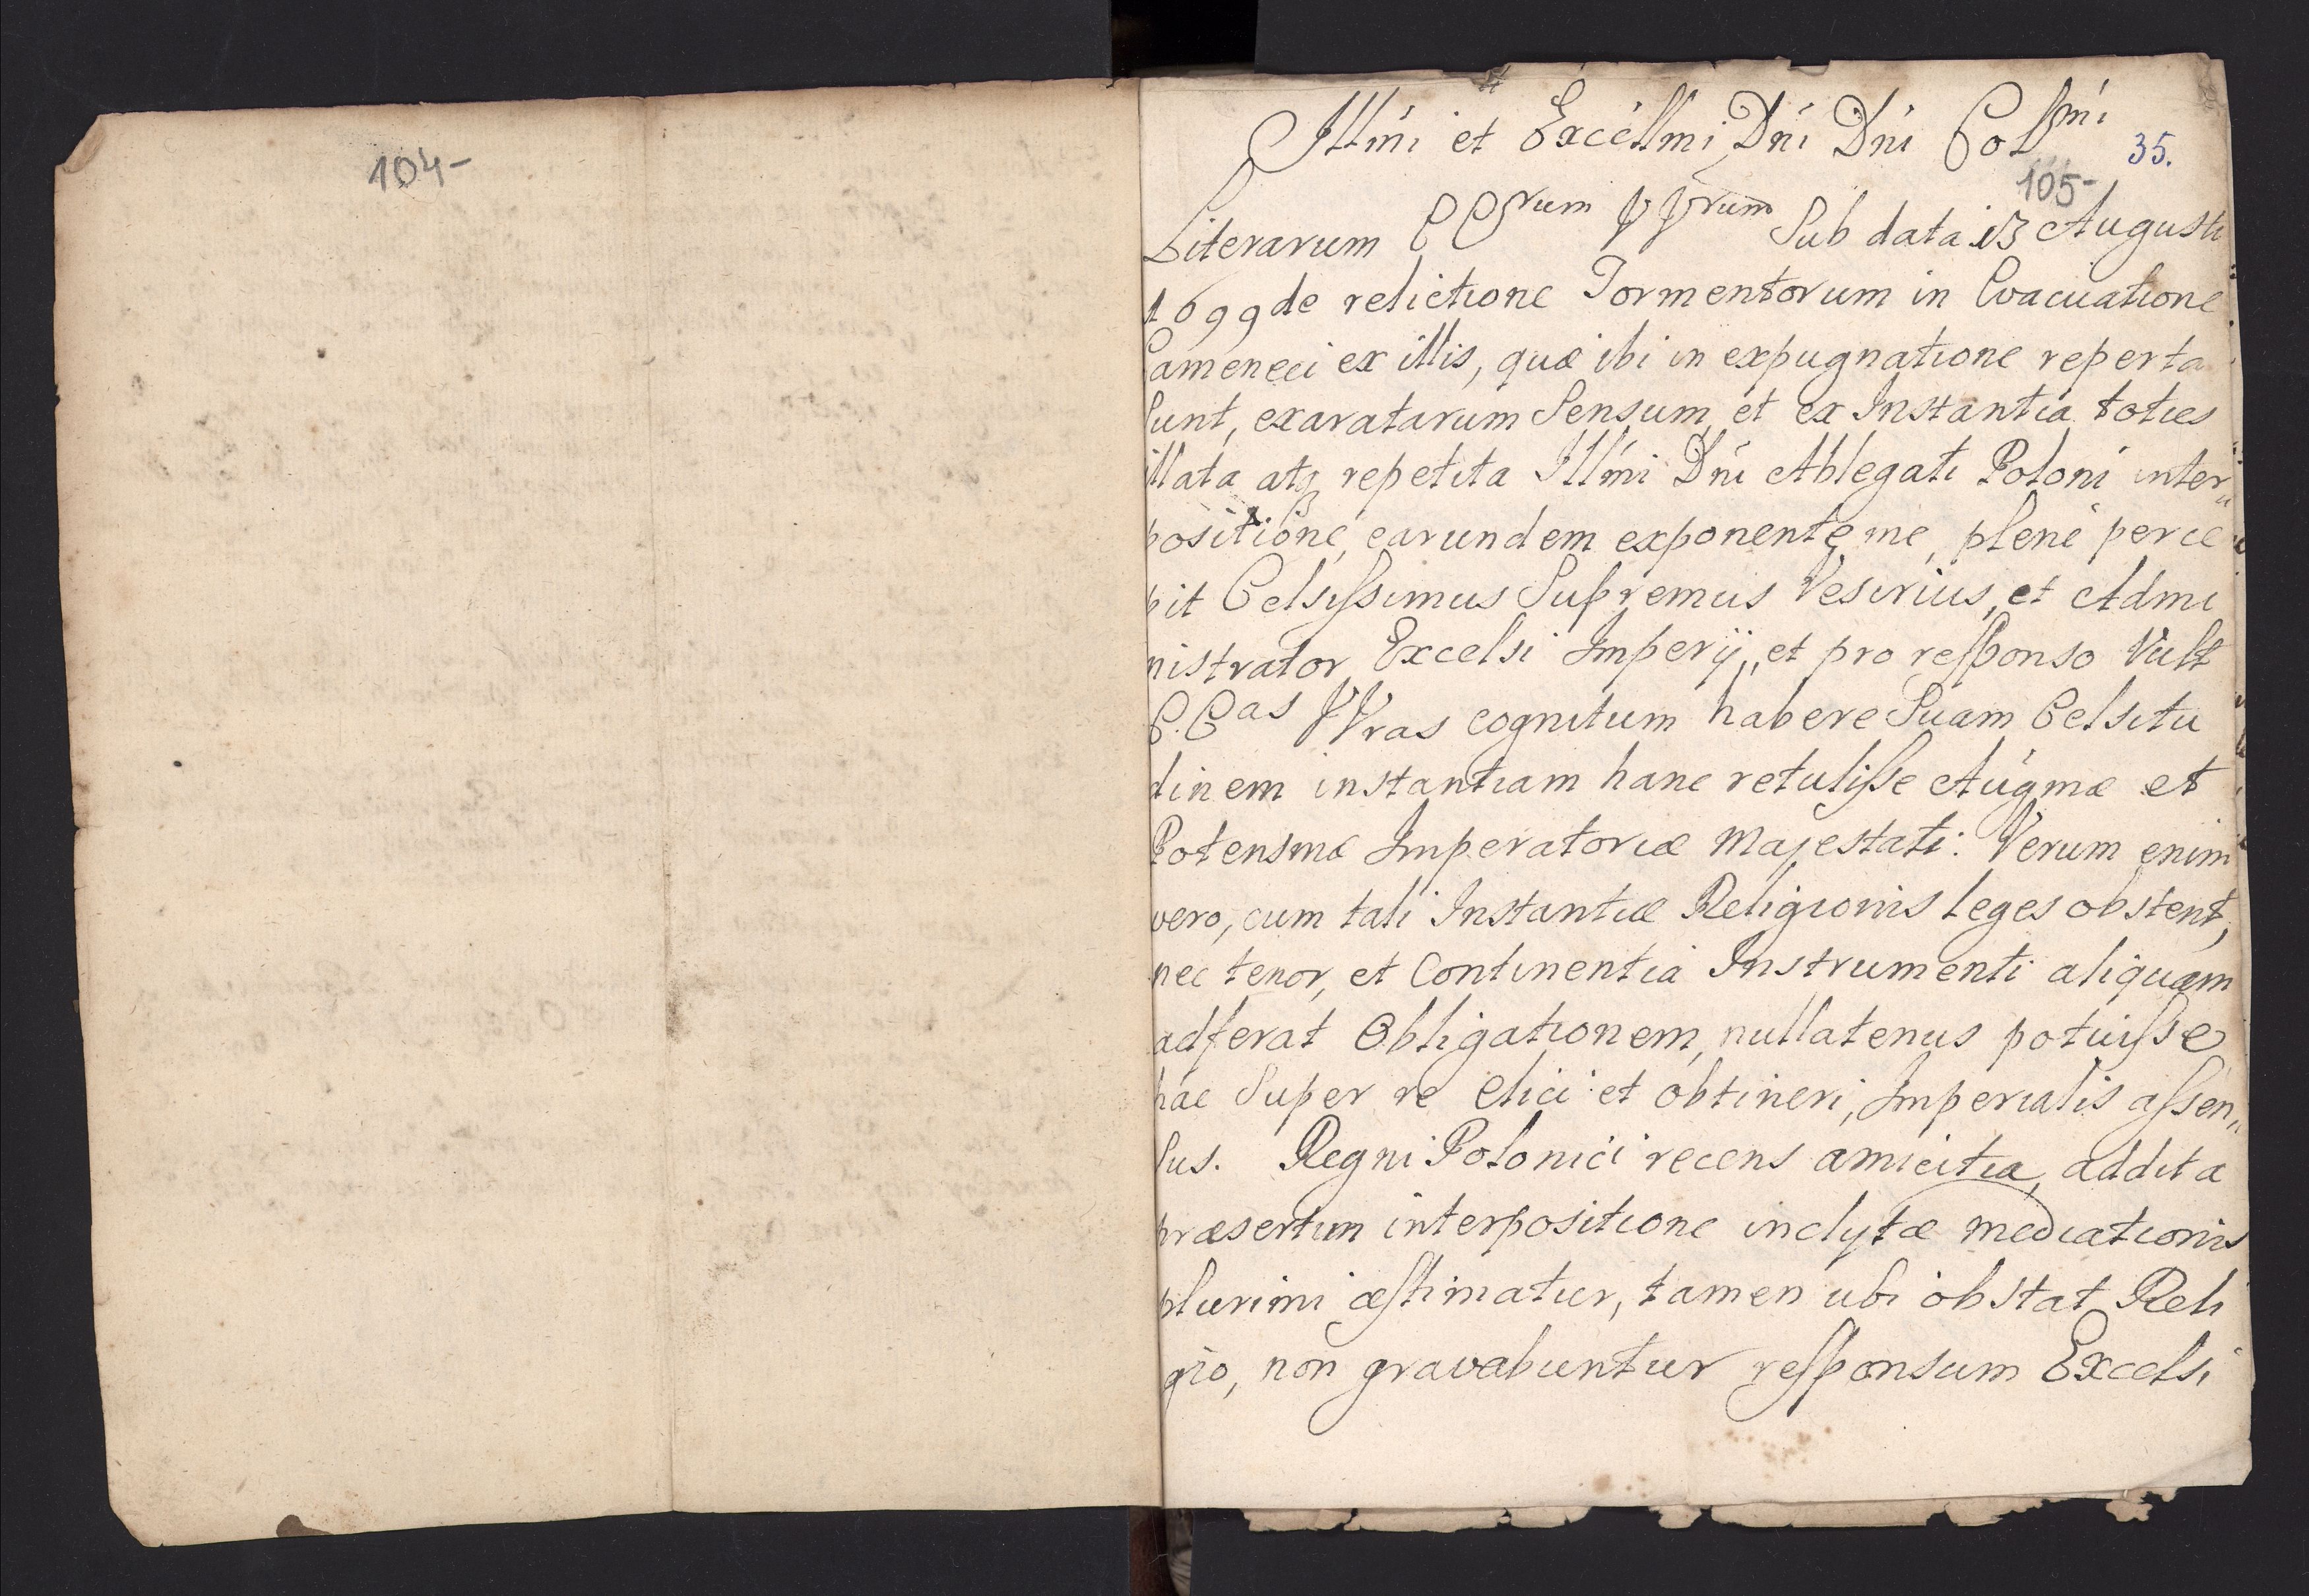 104-
Illmi et Excellmi Dni Dni Colssmi
35.
105-
Literarum EErum VVrum Sub data 13 Augusti
1699 de relictione Tormentorum in Evacuatione
Cameneci ex illis, quæ ibi in expugnatione reperta
sunt, exaratarum Sensum, et ex Instantia toties
illata atq repetita Illmi Dni Ablegati Poloni inter„
positione, earundem exponente me, plenè perce
pit Celsissimus Supremus Vesirius, et Admi
nistrator Excelsi Imperÿ, et pro responso Vult
E.Eas VVras cognitum habere Suam Celsitu
dinem instantiam hanc retulisse Augmæ et
Potensmæ Imperatoriæ Majestati: Verum enim
vero, cum tali Instantiæ Religionis leges obstent,
nec tenor, et Continentia Instrumenti aliquam
adferat Obligationem, nullatenus potuisse
hac Super re elici et obtineri, Imperialis assen„
sus. Regni Polonici recens amicitia, addita
præsertim interpositione inclytæ mediationis
plurimi æstimatur, tamen ubi obstat Reli
gio, non gravabuntur responsum Excelsi